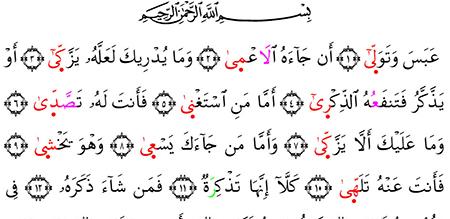 بِسْمِ ٱللَّهِ ٱلرَّحْمَٰنِ ٱلرَّحِيمِ
عَبَسَ وَتَوَلَّىٰٓ ﴿١﴾ أَن جَآءَهُ ٱلْأَعْمِىٰ ﴿٢﴾ وَمَا يُدْرِيكَ لَعَلَّهُۥ يَزَّكِّىٰٓ ﴿٣﴾ أَوْ
يَذَّكَّرُ فَتَنفَعُهُ ٱلذِّكْرِىٰٓ ﴿٤﴾ أَمَّا مَنِ ٱسْتَغْنِىٰ ﴿٥﴾ فَأَنتَ لَهُۥ تَصَّدِّىٰ ﴿٦﴾
وَمَا عَلَيْكَ أَلَّا يَزَّكِّىٰ ﴿٧﴾ وَأَمَّا مَن جَآءَكَ يَسْعِىٰ ﴿٨﴾ وَهْوَ يَخْشِىٰ ﴿٩﴾
فَأَنتَ عَنْهُ تَلَهِّىٰ ﴿١٠﴾ كَلَّآ إِنَّهَا تَذْكِرَةٌ ﴿١١﴾ فَمَن شَآءَ ذَكَرَهُۥ ﴿١٢﴾ فِى